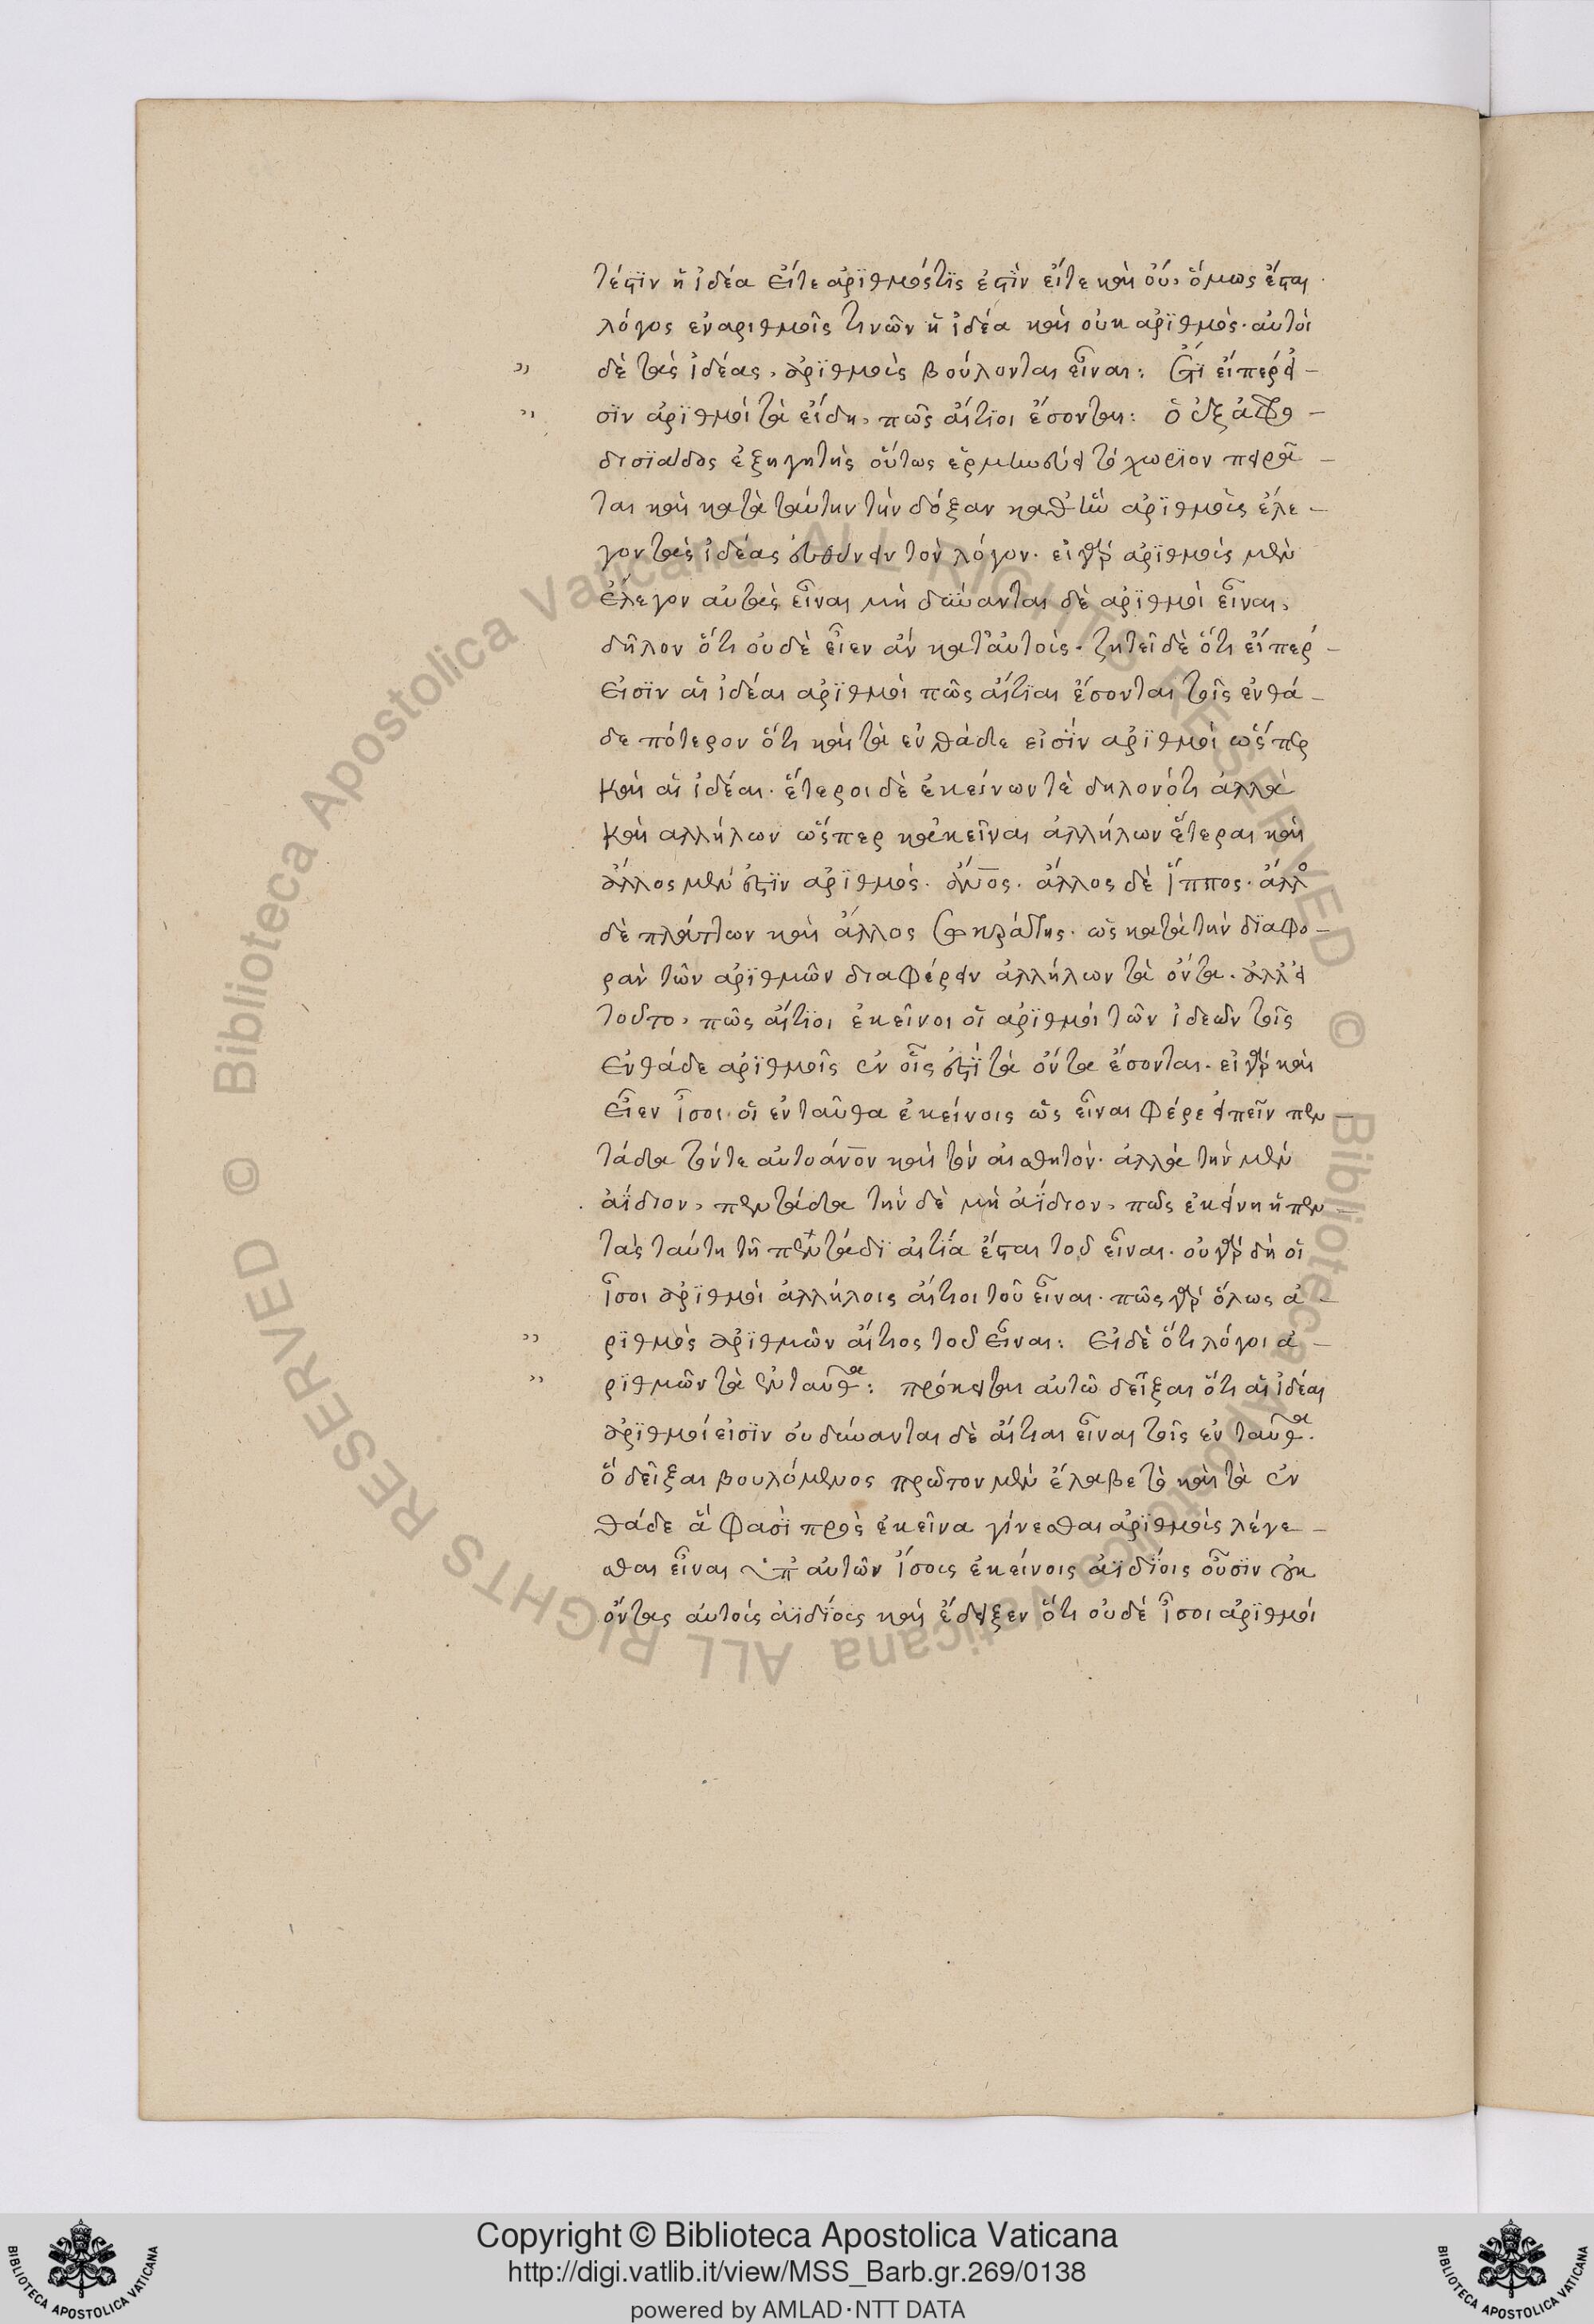 τέστϊν ἡ ἰδέα εἴτε ἀρϊθμός τϊς ἐστὶν εἴτε καὶ οὐ, ὅμως ἔσται
λόγος ἐν ἀριθμοῖς τινῶν ἡ ἰδέα καὶ οὐκ ἀρϊθμὸς· αὐτοὶ
δὲ τὰς ἰδέας, ἀρϊθμοὺς βούλονται εἶναι: Ἔτϊ εἴπερ εἰ–
σϊν ἀρϊθμοὶ τὰ εἴδη, πῶς αἴτϊοι ἔσονται: ὁ
δισϊαῖος ἐξηγητὴς οὕτως ἑρμηνεύει τὸ χωρίον πειρᾶ–
ται καὶ κατὰ ταύτην τὴν δόξαν καθ' ἣν ἀρϊθμοὺς ἔλε–
γον τὰς ἰδέας εὐθύνειν τὸν λόγον. εἰ γὰρ ἀρϊθμοὺς μὲν
ἔλεγον αὐτὰς εἶναι μὴ δύνανται δὲ ἀρϊθμοὶ εἶναι,
δῆλον ὅτι οὐδὲ εἶεν ἂν κατ' αὐτοὺς. ζητεῖ δὲ ὅτι εἴπερ–
εἰσϊν αἱ ἰδέαι ἀρϊθμοὶ πῶς αἴτϊαι ἔσονται τοῖς ἐνθά–
δε πότερον ὅτι καὶ τὰ ἐνθάδε εἰσϊν ἀρϊθμοὶ ὥσπερ
καὶ αἱ ἰδέαι. ἕτεροι δὲ ἐκείνων τὲ δηλονότι ἀλλὰ
καὶ ἀλλήλων ὥσπερ κἀκεῖναι ἀλλήλων ἕτεραι καὶ
ἄλλος μὲν ἐστϊν ἀρϊθμὸς. ἄνος. ἄλλος δὲ ἵππος. ἄλλο
δὲ πλάτων καὶ ἄλλος Σωκράτης. ὡς κατὰ τὴν δϊαφο–
ρὰν τῶν ἀρϊθμῶν διαφέρειν ἀλλήλων τὰ ὄντα. ἀλλ' εἰ
τοῦτο, πῶς αἴτϊοι ἐκεῖνοι οἱ ἀρϊθμοὶ τῶν ἰδεῶν τοῖς
ἐνθάδε ἀρϊθμοῖς ἐν οἷς ἐστϊ τὰ ὄντα ἔσονται. εἰ γὰρ καὶ
εἶεν ἴσοι οἱ ἐνταῦθα ἐκείνοις ὡς εἶναι φέρε εἰπεῖν πεν–
τάδα τόν τε αὐτοάνον καὶ τὸν αἰσθητὸν. ἀλλὰ τὴν μὲν
ἀΐδιον, πεντάδα τὴν δὲ μὴ ἀΐδιον, πῶς ἐκείνη ἡ πεν–
τὰς ταύτη τῆ πεντάδϊ αἰτϊα ἔσται τοῦ εἶναι. οὐ γὰρ δὴ οἱ
ἴσοι ἀρϊθμοὶ ἀλλήλοις αἴτιοι τοῦ εἶναι. πῶς γὰρ ὅλως ἀ–
ρϊθμὸς ἀρϊθμῶν αἴτιος τοῦ εἶναι: Εἰ δὲ ὅτι λόγοι ἀ–
ρϊθμῶν τὰ ἐνταῦθα: πρόκειται αὐτῶ δεῖξαι ὅτι αἱ ἰδέαι
ἀρϊθμοὶ εἰσϊν οὐ δύνανται δὲ αἴτιαι εἶναι τοῖς ἐνταῦθα.
ὃ δεῖξαι βουλόμενος πρῶτον μὲν ἔλαβε τὸ καὶ τὰ ἐν
θάδε ἅ φασϊ πρὸς ἐκεῖνα γίνεσθαι ἀρϊθμοὺς λέγε–
σθαι εἶναι αὐτῶν ἴσους ἐκείνοις ἀϊδϊοις οὖσϊν οὐκ
ὄντας αὐτοὺς ἀϊδίους καὶ ἔδειξεν ὅτι οὐδὲ ἴσοι ἀρϊθμοὶ
Copyright © Biblioteca Apostolica Vaticana
http://digi.vatlib.it/view/MSS_Barb.gr.269/0138
powered by AMLAD·NTT DATA